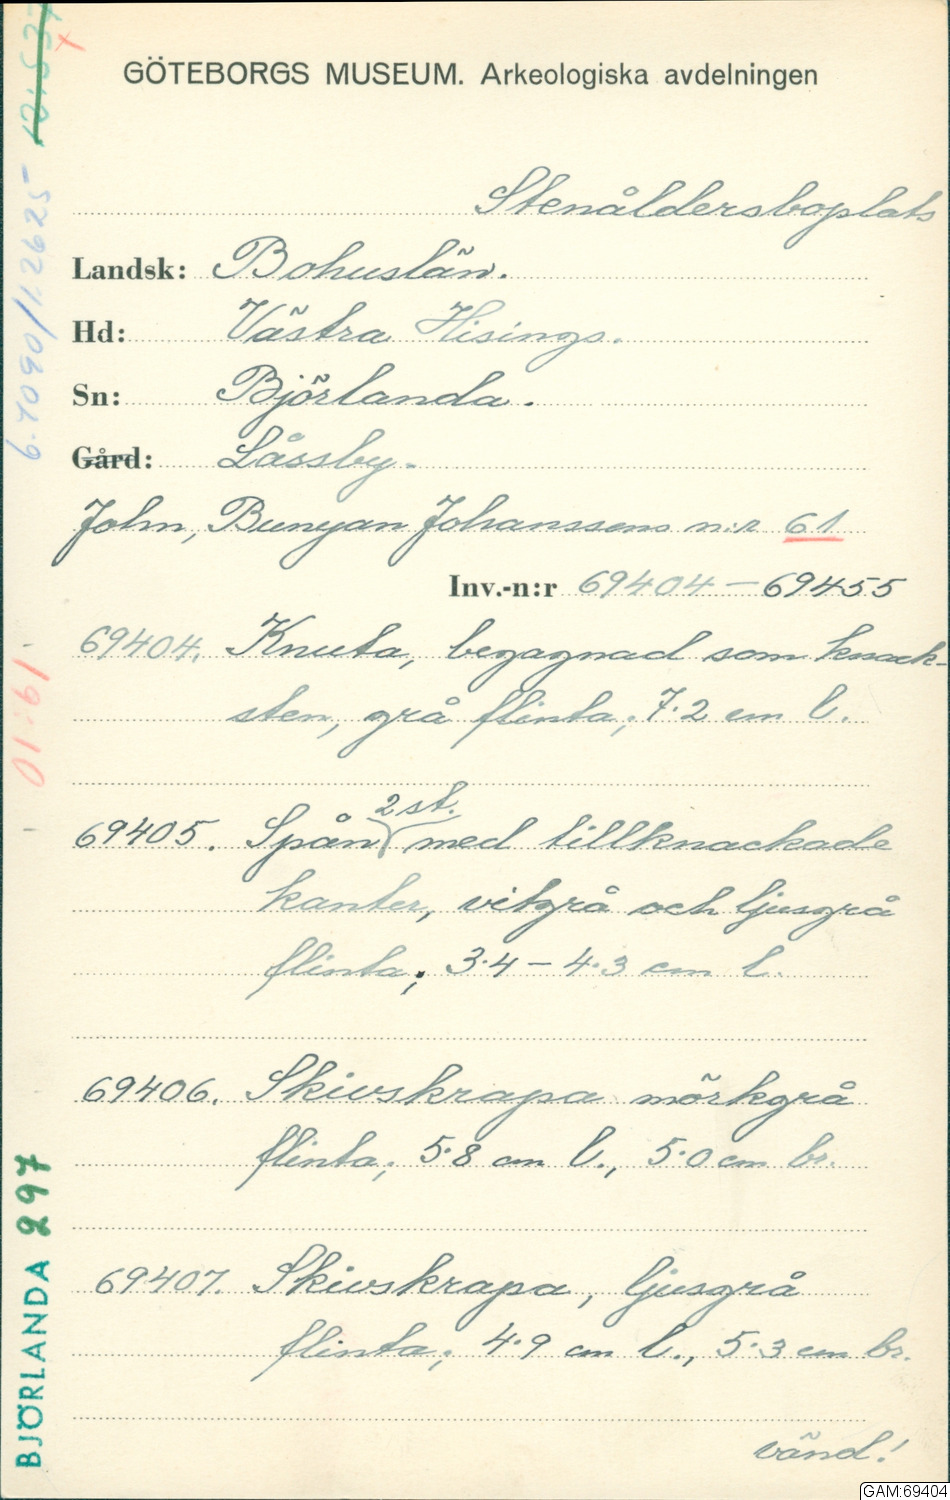 GÖTEBORGS MUSEUM. Arkeologiska avdelningen
Stenåldersboplats
Landsk: Bohuslän.
Hd: Västra Hisings.
Sn: Björlanda.
Gård: Låssby.
John, Bunyan Johanssons n:r 61
Inv.-n:r 69404 — 69455
69404. Knuta, begagnad som knack-
sten, grå flinta; 7.2 cm l.
69405. Spån 2 st. med tillknackade
kanter, vitgrå och ljusgrå
flinta; 3.4 – 4.3 cm l.
69406. Skivskrapa mörkgrå
flinta; 5.8 cm l., 5.0 cm br.
69407. Skivskrapa, ljusgrå
flinta; 4.9 cm l., 5.3 cm br.
vänd!
BJÖRLANDA 297
6.7090/1.2625
GAM:69404